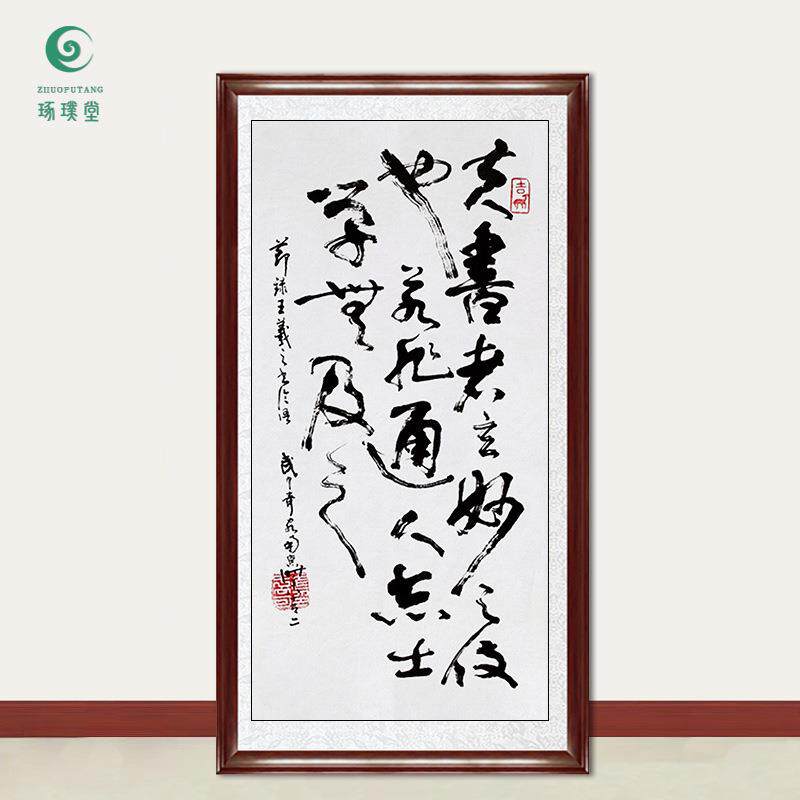 ZHUOPUTANG
琢璞堂
夫書者玄妙之伎
也若非通人志士
学無及之
節録王羲之书论语